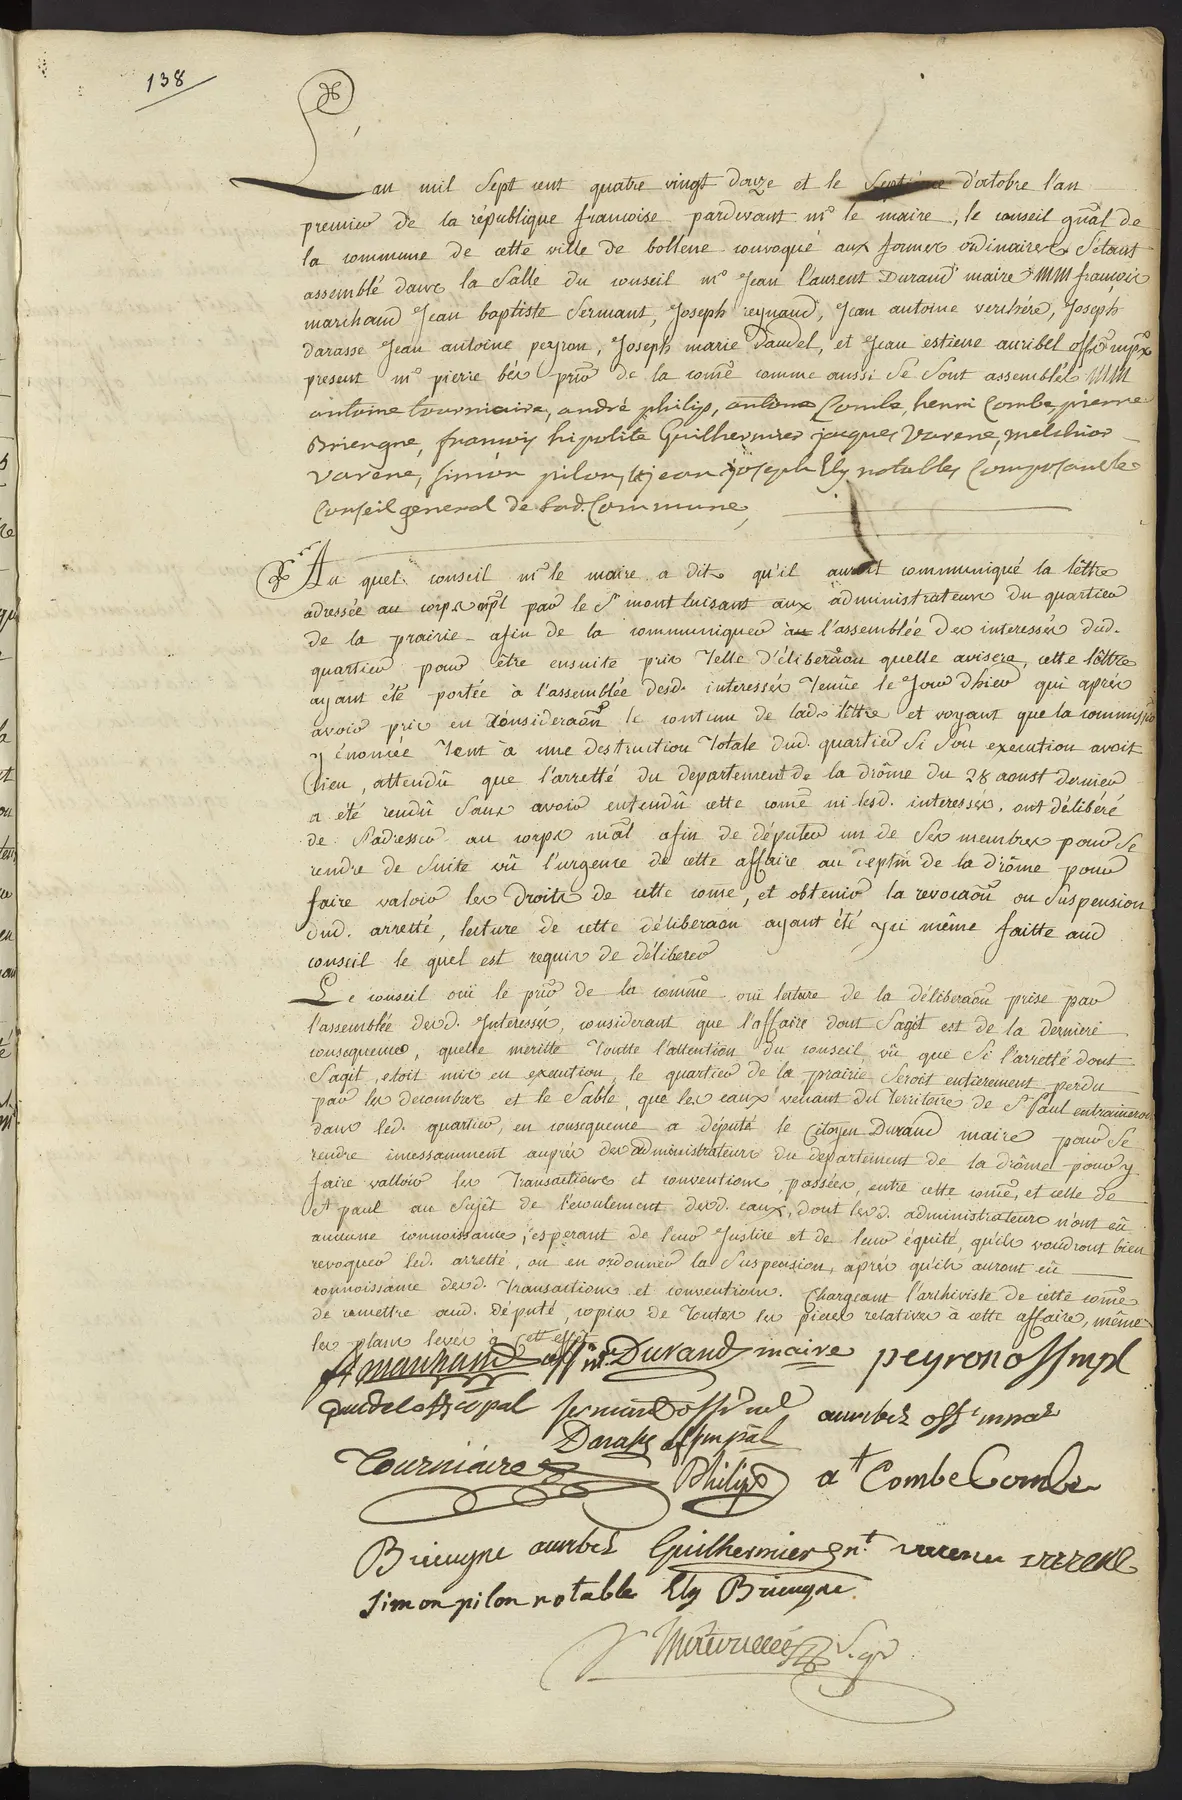 138
L'an mil sept cent quatre vingt douze et le septième d'octobre l'an
premier de la république francoise pardevant mr le maire, le conseil gnãl de
la commune de cette ville de bollene convoqué aux formes ordinaires s'étant
assemblé dans la salle du conseil mr Jean laurent Durand maire MM francois
marchand Jean baptiste Sermant, Joseph reynaud, Jean antoine verchére, Joseph
darasse Jean antoine peyron, Joseph marie Daudel, et Jean estiene auribel offrs mpx
present mr pierre bés prõr de la comẽ comme aussi se sont assemblés MM
antoine tourniaire, andré philip, antoine Combe, henri Combe pierre
Brieugne, francois hipolite Guilhermier jacques Varene, melchior
Varene, simon pilon, et jean joseph Ely notables Composant le
Conseil general de lad. Commune,
Au quel conseil mr le maire a dit qu'il auroit communiqué la lettre
adressée au corps mpl par le Sr montluisant aux administrateurs du quartier
de la prairie afin de la communiquer a l'assemblée des interessés dud.
quartier pour être ensuite pris telle d'éliberaõn quelle avisera, cette lettre
ayant été portée à l'assemblée desd. interessés tenüe le jour d'hier qui aprés
avoir pris en consideraõn le contenu de lad. lettre et voyant que la commission
y énoncée tent à une destruction totale dud. quartier si son execution avoit
lieu, attendû que l'arretté du departement de la drôme du 28 aoust dernier
a été rendû sans avoir entendû cette comẽ ni lesd. interessés, ont délibéré
de s'adresser au corps mãl afin de députer un de ses membres pour se
rendre de suite vû l'urgence de cette affaire au deptmt de la drôme pour
faire valoir les droits de cette come, et obtenir la revocaõn ou suspension
dud. arretté, lecture de cette déliberaõn ayant été ici même faitte aud
conseil le quel est requis de délibérer
Le conseil oui le prõr de la commẽ oui lecture de la déliberaõn prise par
l'assemblée desd. Interessés, considerant que l'affaire dont s'agit est de la derniere
consequence, quelle meritte toutte l'attention du conseil vû que si l'arretté dont
s'agit, etoit mis en execution, le quartier de la prairie seroit entierement perdu
par les decombres et le sable, que les eaux venant du territoire de St Paul entraineroit
dans led. quartier, en consequence a député le Citoyen Durand maire pour se
rendre incessamment auprés des administrateurs du departement de la drôme pour y
faire valloir les transactions et conventions, passées, entre cette comẽ, et celle de
St paul au sujêt de l'ecoulement desd. eaux, dont lesd. administrateurs n'ont eû
aucune connoissance, esperant de leur justice et de leur équité, qu'ils voudront bien
revoquer led. arretté, ou en ordonner la suspension, aprés qu'ils auront eû
connoissance desd. transactions et conventions. Chargeant l'archiviste de cette comẽ
de remettre aud. député, copies de toutes les pieces relatives à cette affaire, même
les plans levés à cet effet
fs marchand off m. Durand maire peyron off mpl
Daudel off mpal sermand off mal auribel off munal
Darasse off mpal
Tourniaire Philip at Combe Combe
Brieugne auribel Guilhermier nt varene varene
Simon pilon notable Ely Brieugne
Sgr